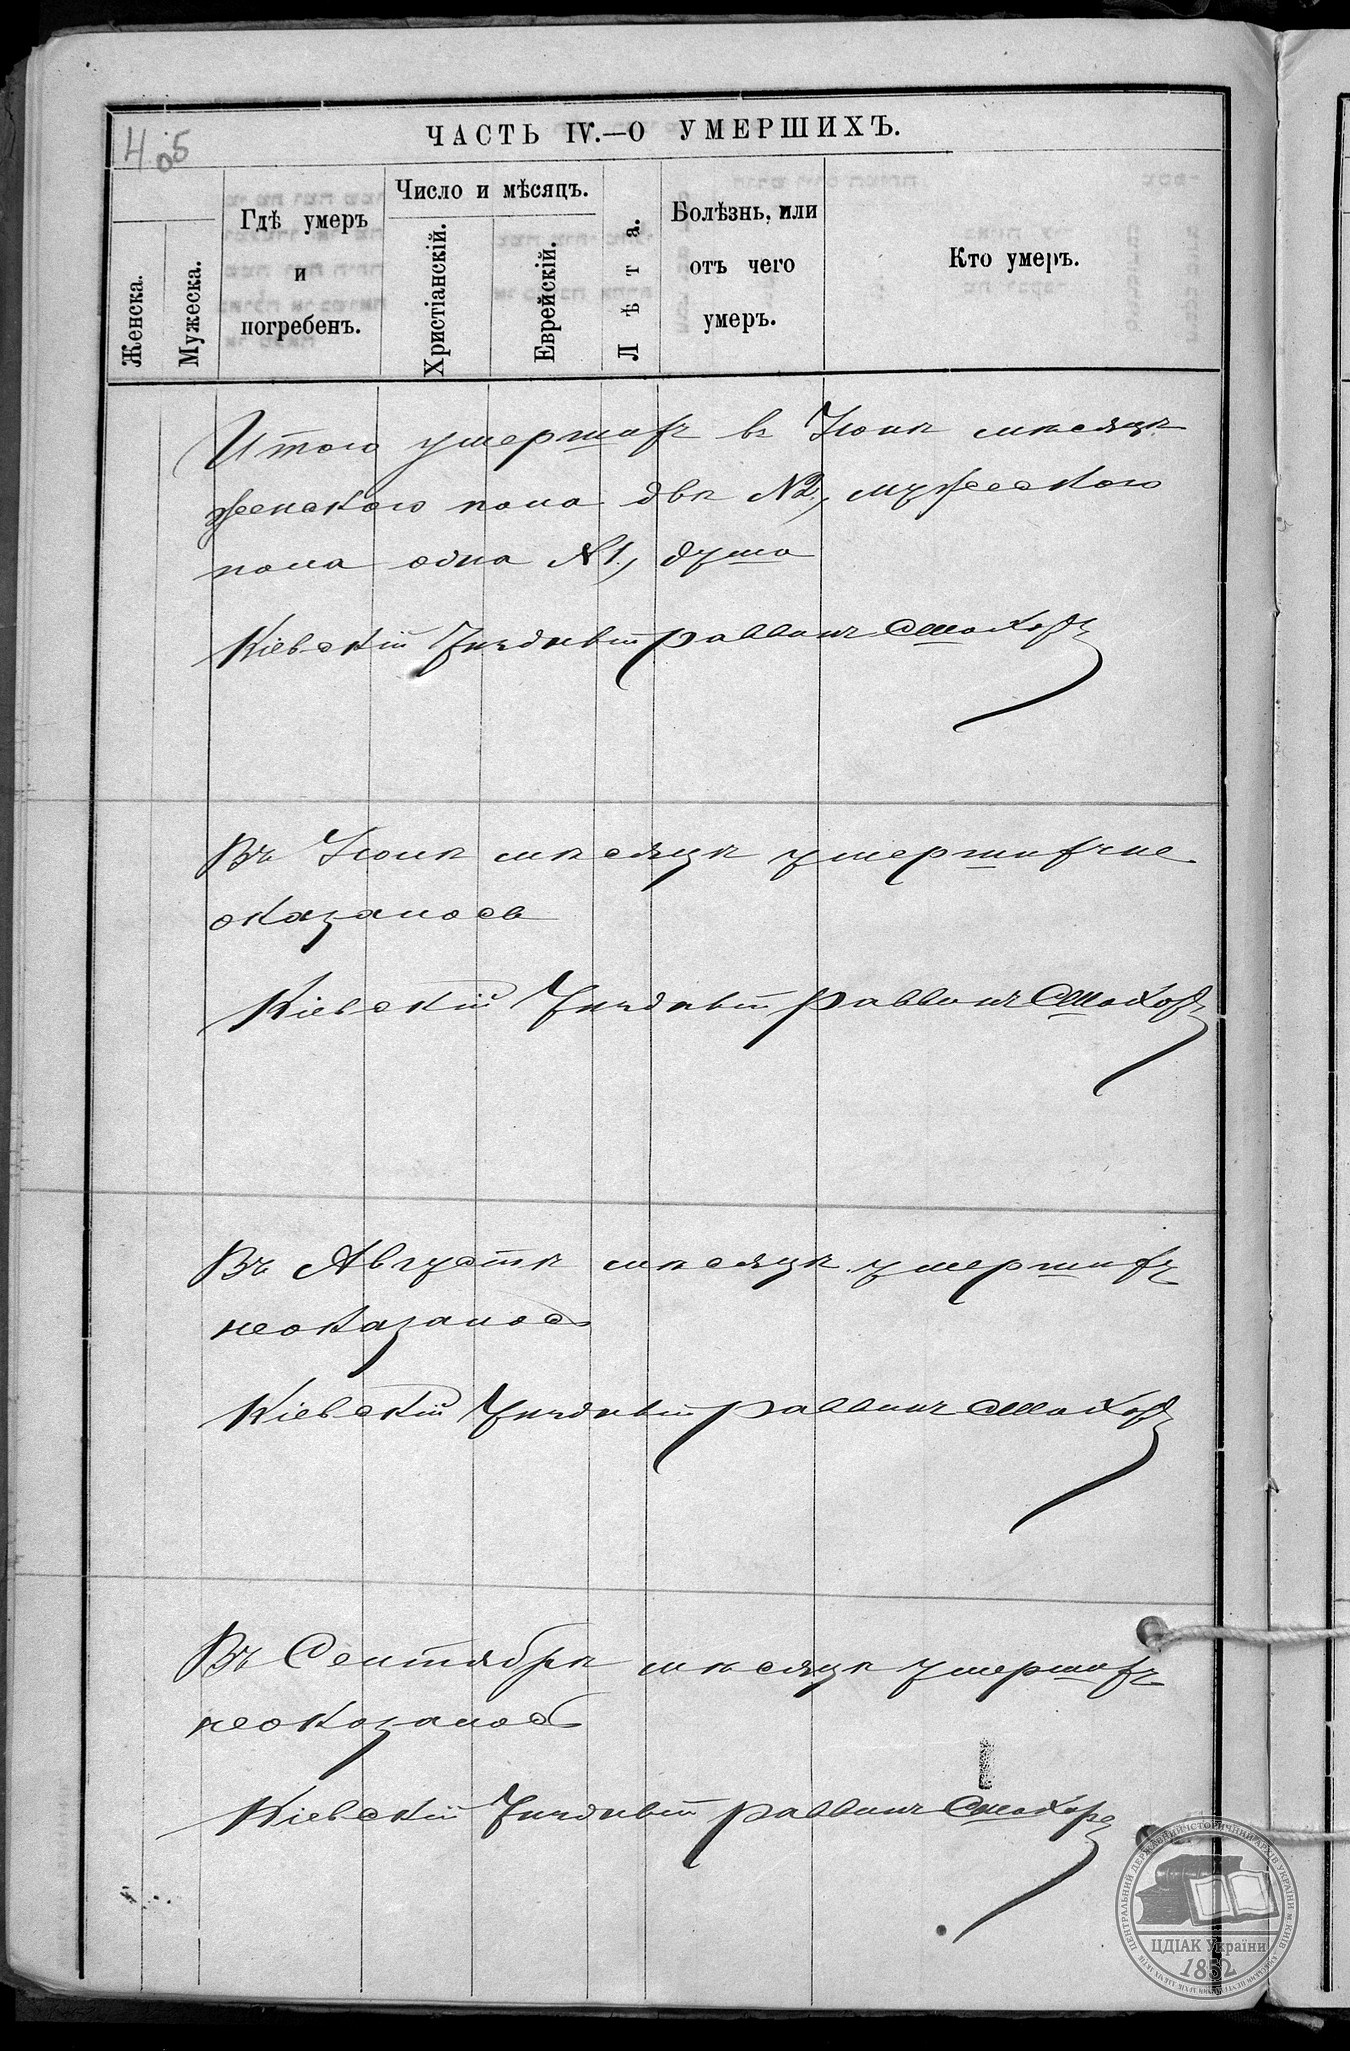 405
ЧАСТЬ IV.—О УМЕРШИХЪ.
Женска.
Мужеска.
Гдѣ умеръ
и
погребенъ.
Число и мѣсяцъ.
Христіанскій.
Еврейскій.
Лѣта.
Болѣзнь, или
отъ чего
умеръ.
Кто умеръ.
Итого умершихъ въ Іюнѣ мѣсяцѣ
женскаго пола двѣ №2, мужескаго
пола одна №1, душа
Кіевскій Уѣздный раввинъ
Въ Іюлѣ мѣсяцѣ умершихъ не
оказалось
Кіевскій Уѣздный раввинъ
Въ Августѣ мѣсяцѣ умершихъ
неоказалось
Кіевскій Уѣздный раввинъ
Въ Сентябрѣ мѣсяцѣ умершихъ
неоказалось
Кіевскій Уѣздный раввинъ
ЦЕНТРАЛЬНИЙ ДЕРЖАВНИЙ ІСТОРИЧНИЙ АРХІВ УКРАЇНИ М. КИЇВ
ЦДІАК України
1852